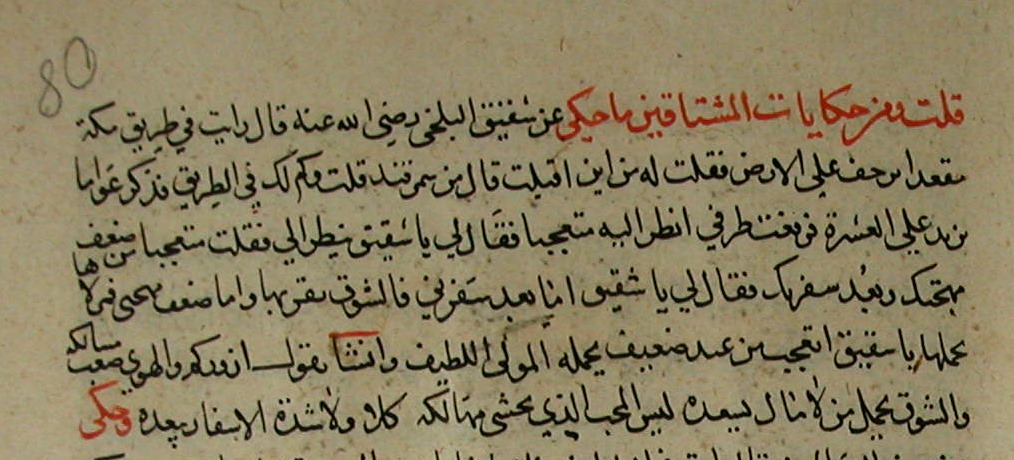 80
قلت ومن حكايات المشتاقين ما حكي عن شقيق البلخي رضي الله عنه قال رايت في طريق مكة
مقعدا يزحف على الارض فقلت له من اين اقبلت قال من سمرقند قلت وكم لك في الطريق فذكر عواما
تزيد على العشرة فرفعت طرفي انظر اليه متعجبا فقال لي يا شقيق تنظر الي فقلت متعجبا من ضعف
مهجتك وبُعد سفرك فقال لي يا شقيق اما بعد سفرتي فالشوق يقربها واما ضعف مهجتي فمولاها
يحملها يا شقيق اتعجب من عبد ضعيف يحمله المولى اللطيف وانشا يقول ازوركم والهوى صعب مسالكه
والشوق يحمل من لا مال يسعده ليس المحب الذي يخشى مهالكه كلا ولا شدة الاسفار تبعده وحكى